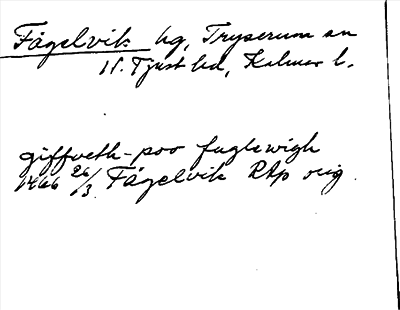 Fågelvik hg, Tryserum sn
N. Tjust hd, Kalmar l.
giffveth poo fuglewigh
1466 26/3. Fågelvik RAp orig.